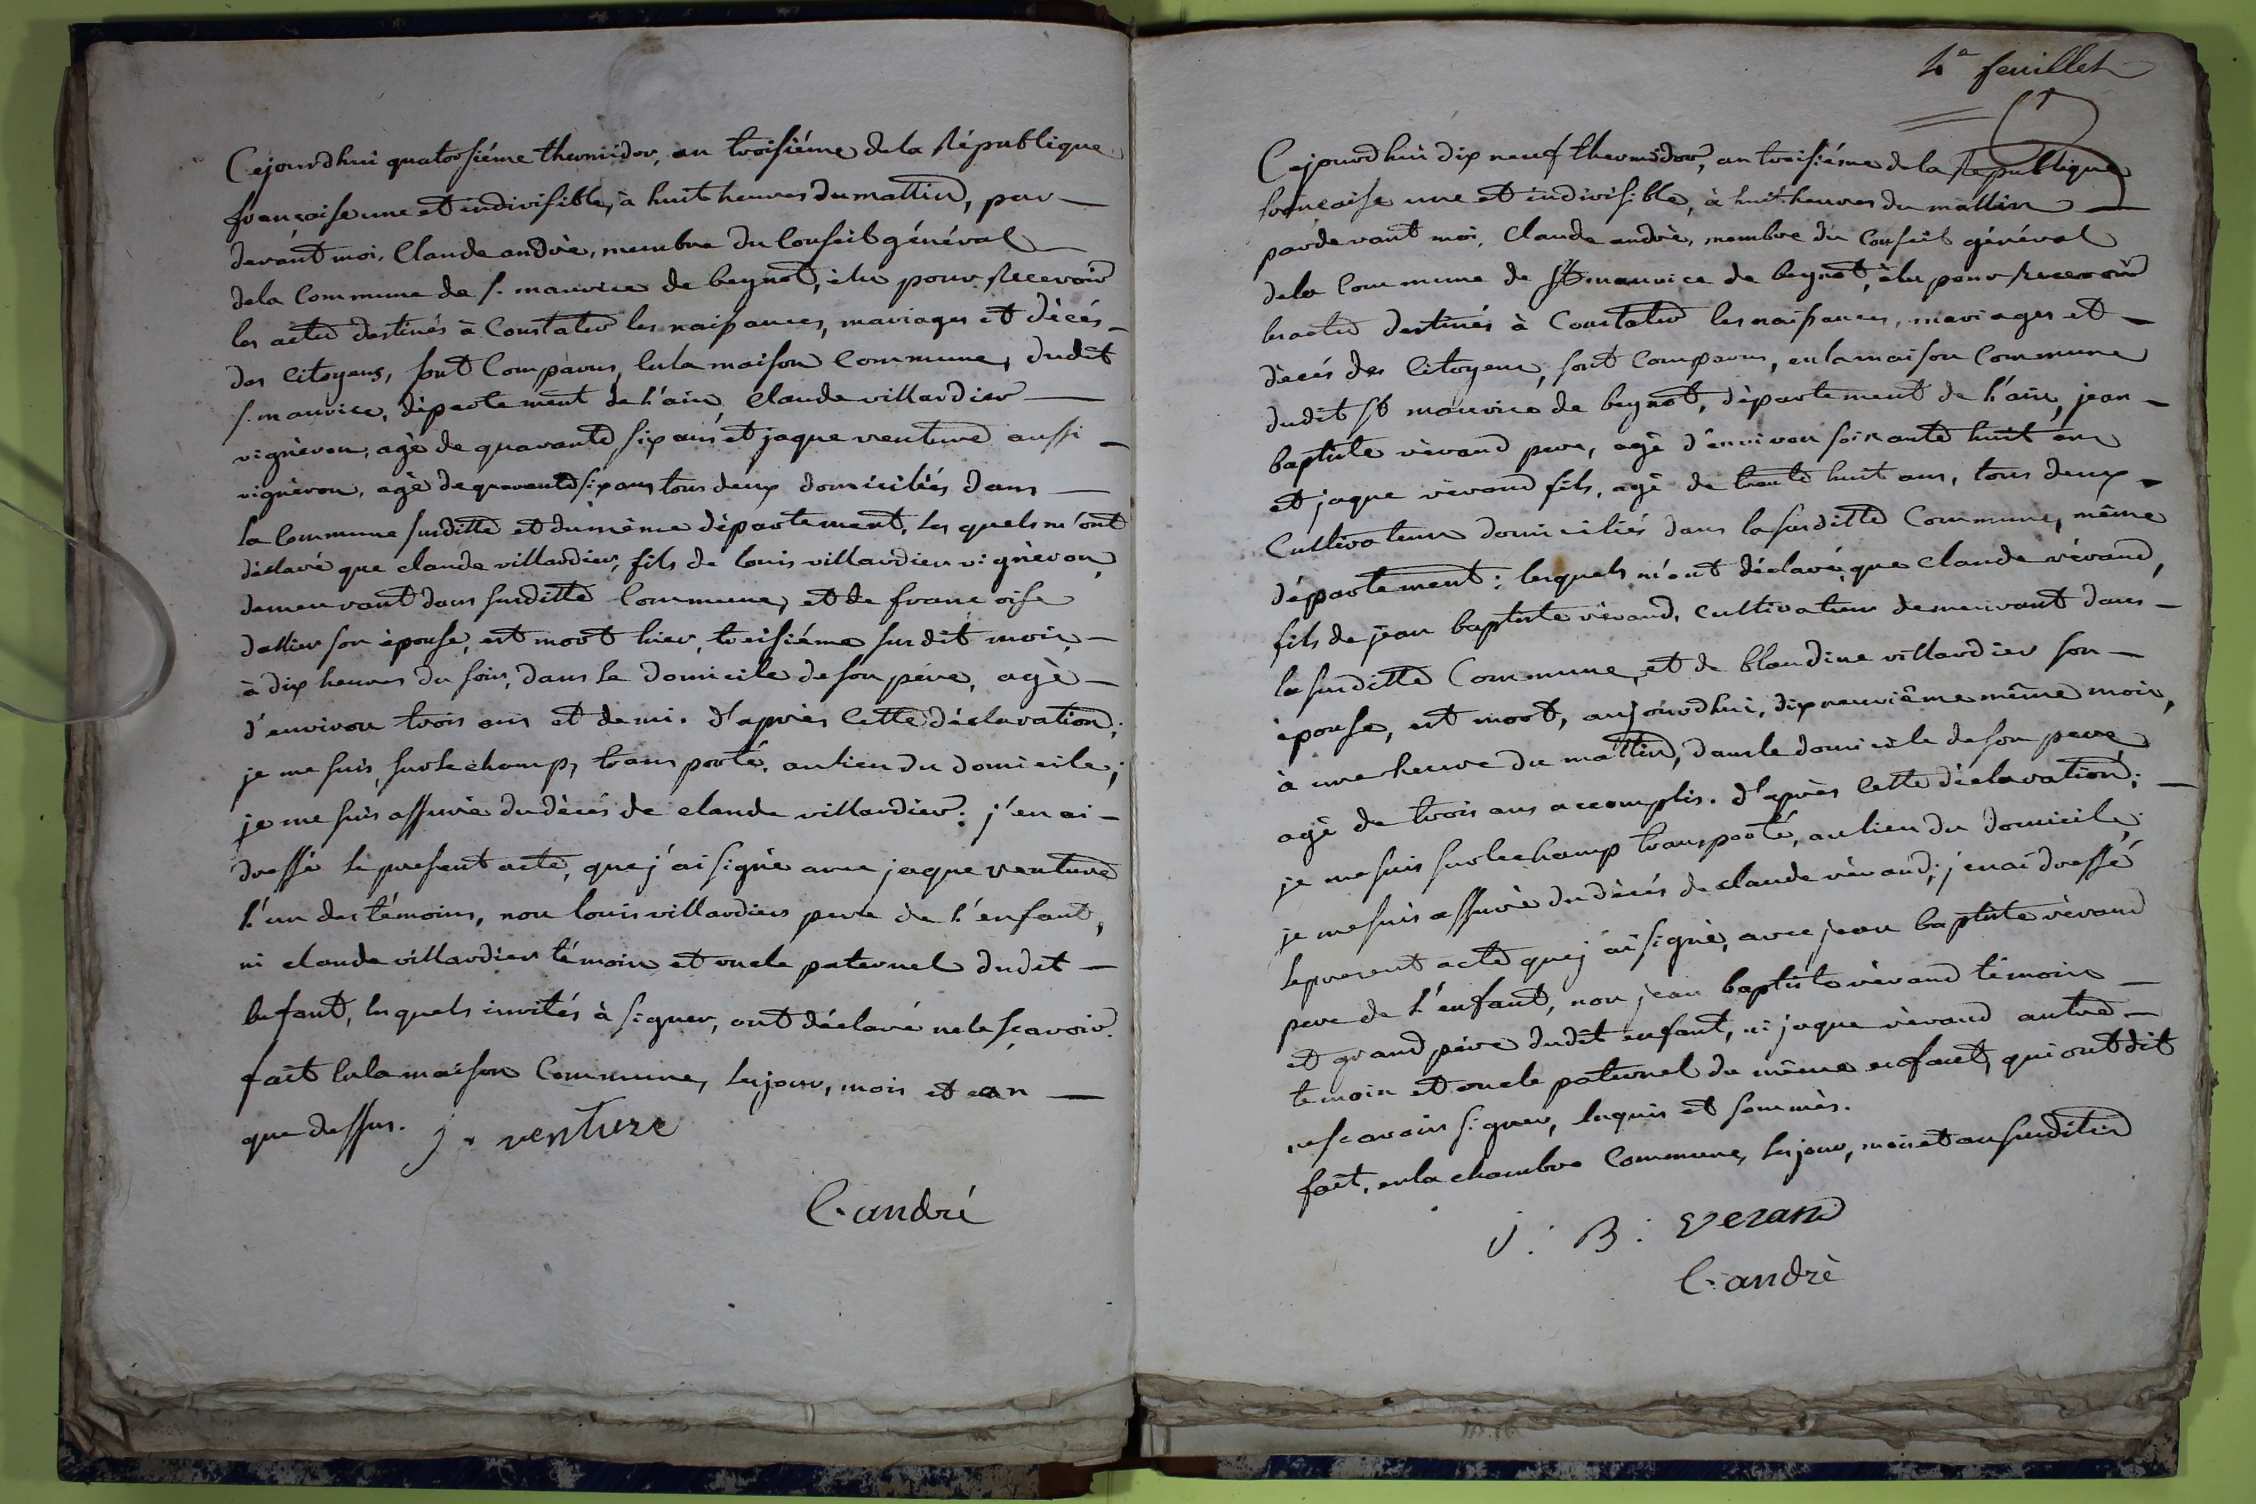 Cejourdhui quatorsiéme thermidor, an troisiéme dela République
françaiseune et indivisible, à huit heures dumattin, par-
devant moi, Claude andrè, membre du Conseil général
dela Commune de s. maurice de beynot, èlu pour Recevoir
les actes destinés à Constater les naissances, mariages et décés-
des Citoyens, sont Comparus, enla maison Commune, dudit
s. maurice, département de l'ain, Claude villardier
vigneron, agé de quarante six ans et jaque venture aussi
vigneron, agè dequarantesixans tous deux domiciliés dans
la Commune susditte et dumême département, les quels m'ont
déclaré que claude villardier, fils de louis villardier vigneron,
demeurant dans susditte Commune, et de francoise
son èpouse, est mort hier, treisiéme susdit mois,
à dix heures du soir, dans le domicile deson pére, agè
d'environ trois ans et demi. D'après Cette déclaration;
je me suis, surlechamp, transporté, aulieu du domicile;
je me suis assurè dudècés de claude villardier; j'en ai
dressè le present acte, que j'ai signè avec jaque venture
l'un des témoins, non louis villardier pere de l'enfant,
ni claude villardier témoin et oncle paternel dudit
Enfant, lesquels invités à signer, ont déclaré nele sçavoir.
fait enla maison Commune, les jour, mois et an
que dessus. j. venture
C. andré
4e feuillet
Cejourdhui dix neuf thermidor, an troisiéme dela République
francaise une et indivisible, à huit heures du mattin
pardevant moi, Claude andrè, membre du Conseil général
dela Commune de St maurice de beynot, èlu pour recevoir
lesactes destinés à Constater les naissances, mariages et
dècés des Citoyens, sont Comparus, enlamaison Commune
dudit st maurice de beynot, dèpartement de l'ain, jean-
baptiste vèrand pere, agè d'environ soixante huit ans
et jaque vèrand fils, agè de trente huit ans, tous deux
Cultivateurs domiciliés dans lasusditte Commune, même
département: lesquels m'ont déclaré, que Claude vérand,
fils de jean baptiste vèrand, cultivateur demeurant dans
la susditte Commune, et de blandine villardier son
èpouse, est mort, aujourdhui, dixneuviême même mois,
à une heure du mattin, dansle domicile deson pere,
agè de trois ans accomplis. D'après Cette déclaration;
je mesuis surlechamp transporté, aulieu du domicile;
je mesuis assurè dudècés de claude vèrand; j'enai dressé
lepresent acte quej'ai signè, avec jean baptiste vèrand
pere de l'enfant, non jean baptiste vèrand témoin
et grand pére dudit enfant, ni jaque vèrand autre
temoin et oncle paternel du même enfant, qui ont dit
nescavoir signer, Enquis et sommès.
fait, enla chambre Commune, les jour, moiset an susdits
J. B. verand
C. andrè